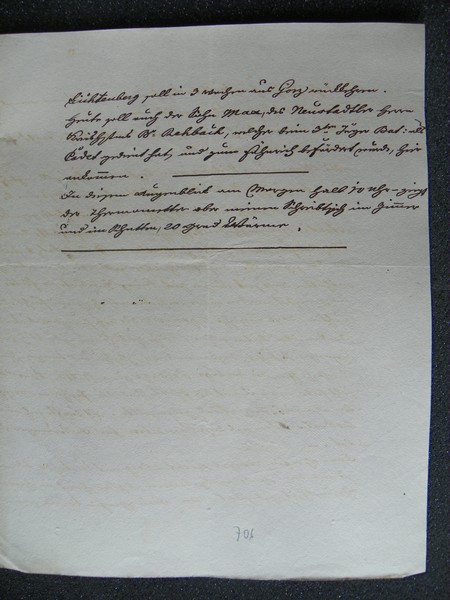 Lichtenberg soll in 3 Wochen aus Görz rückkehren.
Heute soll auch der Sohn Max, des Neustadtler Herrn
Bezirks, welcher beim 3ten Jäger Bat: als
Cadet gedient hat, und zum Fähnrich befördert wurde, hier
ankommen.
In diesem Augenblick am Morgen halb 10 Uhr zeigt
der Thermometter ober meinem Schreibtisch im Zimmer
und im Schatten, 20 grad Wärme.
701